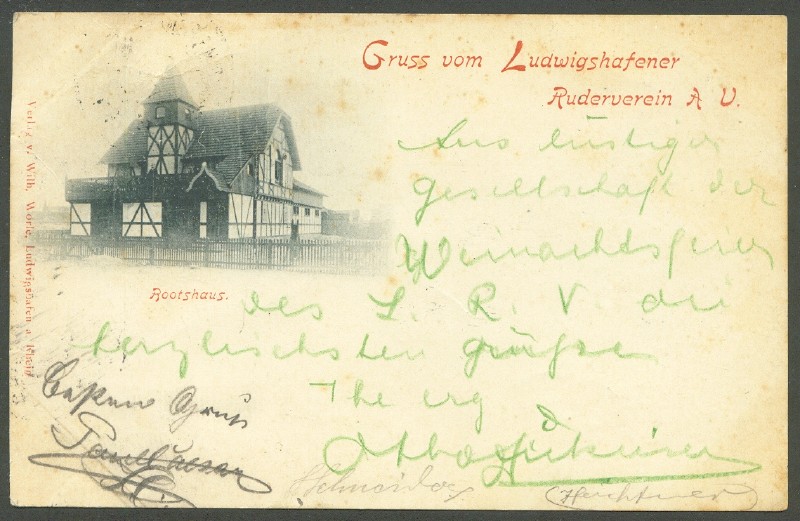 Gruss vom Ludwigshafener
Ruderverein A V.
Verlag v. Wilh. Wörle, Ludwigshafen a. Rhein
Bootshaus.
Aus lustiger
gesellschaft der
Weinachtsfeier
des L. R. V die
herzlichsten grüße
Otto
Besten Gruß
Paul
Schneider